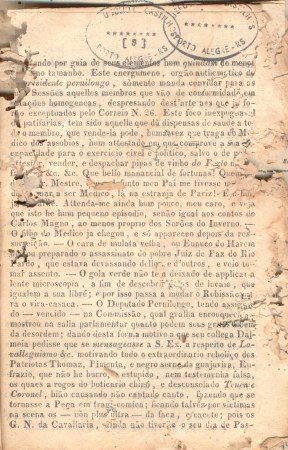 [8]
PORTO ALEGRE-RS
ando por guia de seus elementos hum quindam de menor
no tamanho. Este energumeno, orgão authentico do
residente pernilongo, sómente manda convidar para as
Sessões aquelles membros que vão de conformidade em
ações homogeneas, despresando dest'arte os que ja fo-
rão exceptuados pelo Correio N. 36. Este foco inexp
patifarias, teio sido aquelle que dá dispensas de saude a to-
do o membro, que vende-la pode, humavez que traga do Me-
dico dos assobios, hum attestado em que comprove a sua
capacidade para o exercicio civel e politico, salvo o de
vender, e despachar pipas de vinho do
&c. &c. Que bello manancial de fortunas!
Mestre, tanto meu Pai me tivesse
a ser Medico, lá na estranja de Pariz!
me. Attenda-me ainda hum pouco, meu caro, e veja
que isto he hum pequeno episodio, senão igual aos contos de
Carlos Magno, ao menos proprio dos Serões do Inverno. —
O filho do Medico ja chegou, e só apparece depois da re-
surreição. — O cara de mulata velha, ou Eunuco do Harem
ou preparado o assassinato do pobre Juiz de Paz do Rio
Pardo, que estava devassando delle, e d'outros, e veio to-
mar assento. — O gola verde não te a deixado de applicar a
lente microscopia, a fim de descobrir de incaic, que
igualem a sua libré; e por isso passa a mudar o Robissona
ra o vira-casaca. — O Deputado Pernilongo, tendo assigna-
do — vencido — na Commissão, qual gralha encoque
mostrou na salla parlamentar quanto podem suas
da desordem; dando desta forma motivo a que seu collega Dal-
meia pedisse que se mensageasse a S. Ex. a respeito de Lo-
valleguismo &c. motivando tudo o extraordinario reboliço dos
Patriotas Thomaz, Pimenta, e negro serne do guajuvira, Eu-
frazio, que não he burro, estupido, nem testemunha falsa,
os quaes a rogos do boticario chim, e desconsolado Tenente
Coronel, hião causando não cantado canto, fazendo que se
tornasse a Peça em tragi-comica; ficando talvez por victimas
na scena os — non plus ultra — da faca, e cacete; pois os
G. N. da Cavallaria, ainda não tiverão o seu dia de Pas-